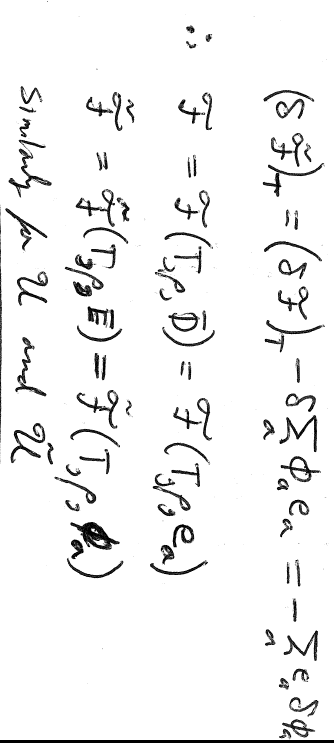 (δ𝓕̃)_T = (δ𝓕)_T − δ∑_a ϕ_a e_a = − ∑_a e_a δϕ_a
∴ 𝓕 = 𝓕(T, ρ, D̄) = 𝓕(T, ρ, e_a)
𝓕̃ = 𝓕̃(T, ρ, E) = 𝓕̃(T, ρ, ϕ_a)
Similarly for 𝒰 and 𝒰̃